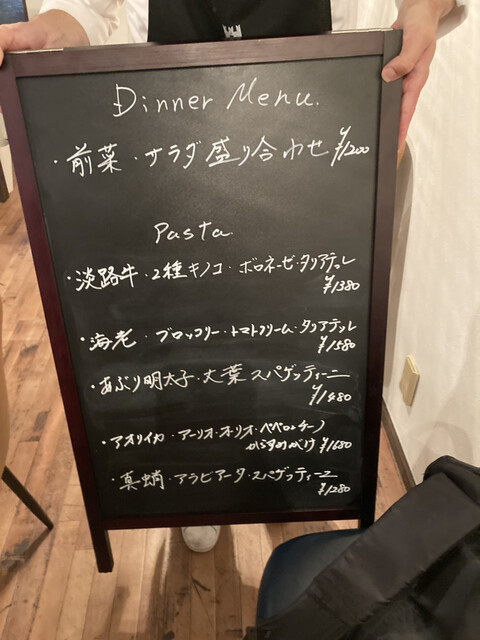 Dinner Menu.
・前菜・サラダ盛り合わせ ¥1200
Pasta.
・淡路牛・2種キノコ・ボロネーゼ・タリアテッレ
¥1380
・海老・ブロッコリー・トマトクリーム・タリアテッレ
¥1580
・あぶり明太子・大葉スパゲッティーニ
¥1480
・アオリイカ・アーリオ・オーリオ・ペペロンチーノ
からすみがけ ¥1680
・真蛸・アラビアータ・スパゲッティーニ
¥1280